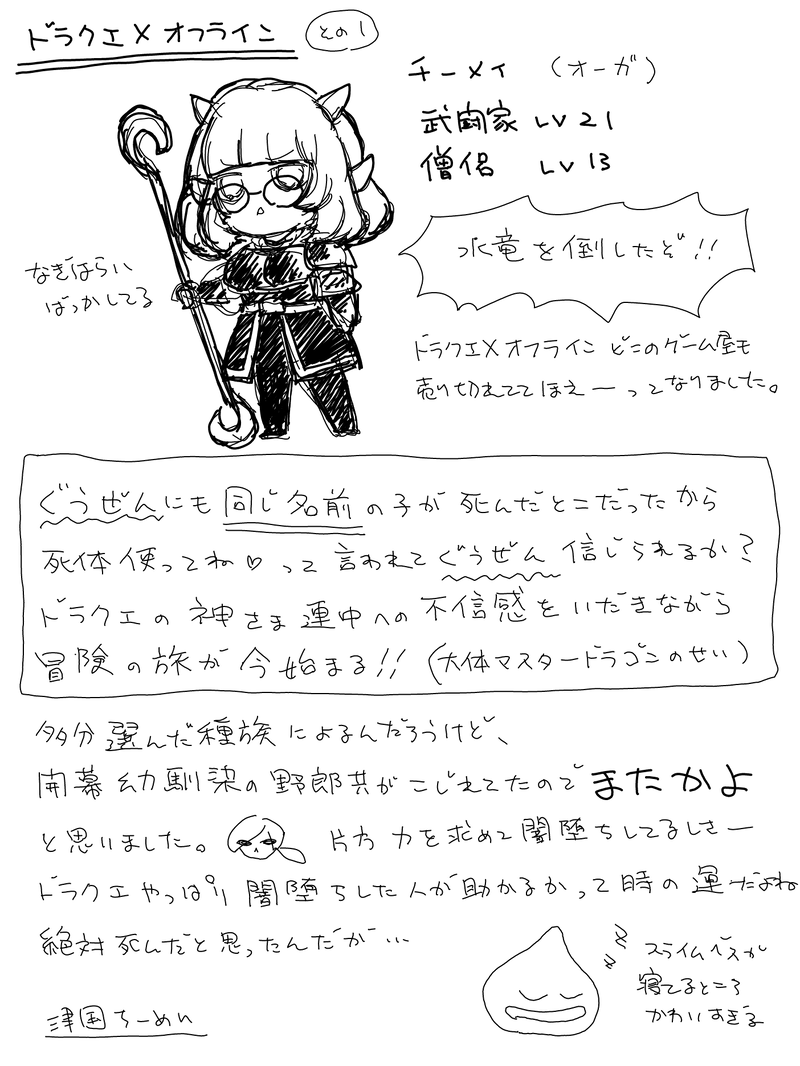 ドラクエX オフライン その1
チーメイ (オーガ)
武闘家 LV 21
僧侶 LV 13
水竜を倒したぞ!!
なぎはらい
ばっかしてる
ドラクエX オフライン どこのゲーム屋も
売り切れてて ほえーってなりました。
ぐうぜんにも 同じ名前の子が 死んだとこだったから
死体使ってね♡って 言われて ぐうぜん 信じられるか?
ドラクエの神さま連中への不信感をいだきながら
冒険の旅が今始まる!! (大体マスタードラゴンのせい)
多分選んだ種族によるんだろうけど、
開幕幼馴染の野郎共が こじれてたので またかよ
と思いました。 片方 力を求めて闇堕ちしてるしさー
ドラクエやっぱり闇堕ちした人が助かるかって時の運だよね
絶対死んだと思ったんだが…
zz
スライムベスが
寝てるところ
かわいすぎる
津国ちーめい